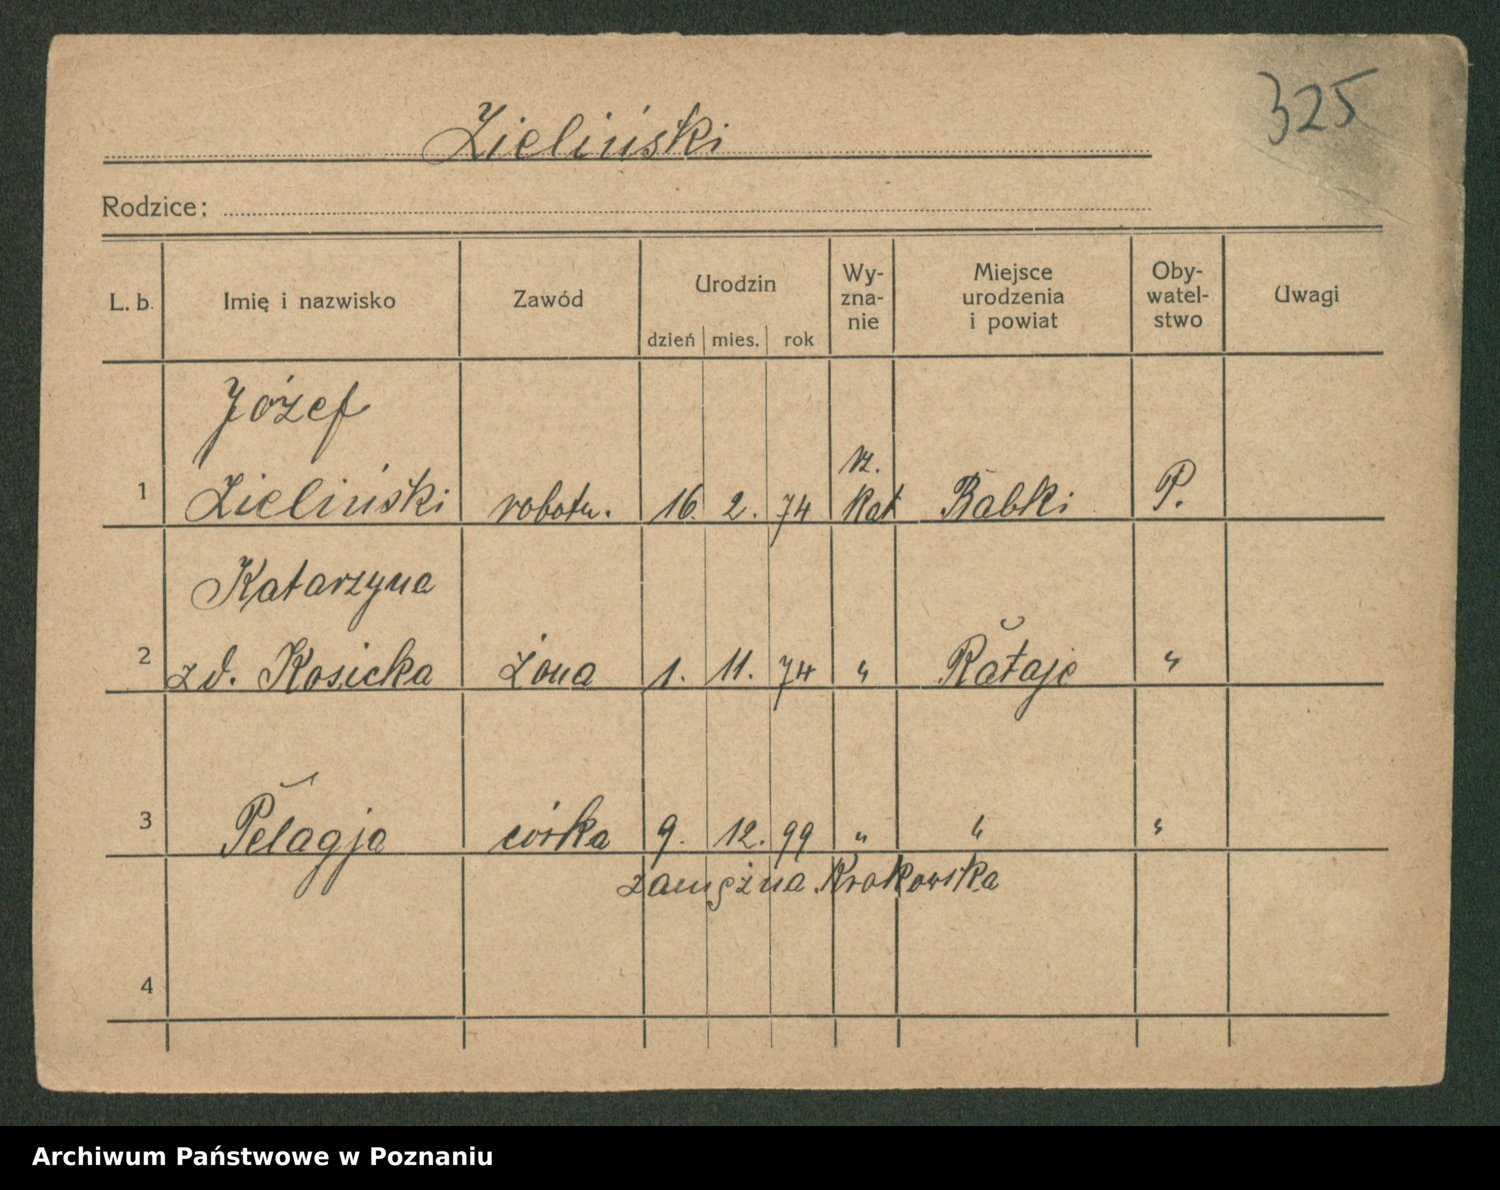 325
Zieliński
Rodzice:
L. b. Imię i nazwisko Zawód Urodzin dzień mies. rok Wy-zna-nie Miejsce urodzenia i powiat Oby-watel-stwo Uwagi
Józef
1 Zieliński robotn. 16. 2. 74 rz. Kat Babki P.
Katarzyna
2 zd. Kosicka żona 1. 11. 74 " Rataje "
3 Pelagja córka 9. 12. 99 " " "
zamężna Krakowska
4
Archiwum Państwowe w Poznaniu